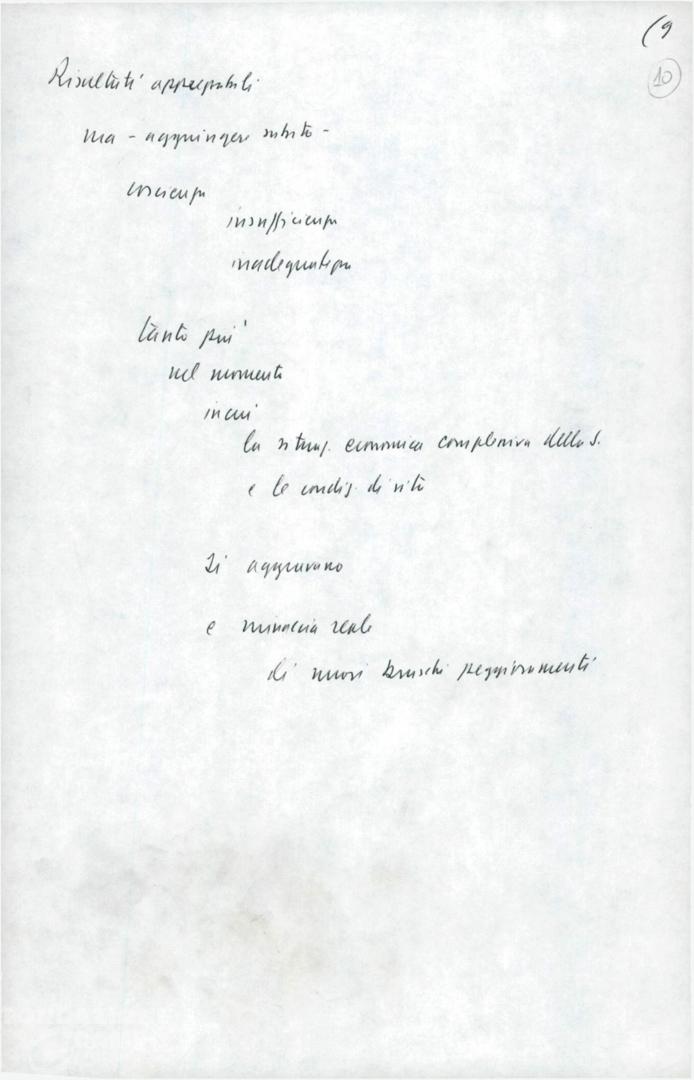 (9
10
Risultati apprezzabili
ma - aggiungere subito -
coscienza
insufficienza
inadeguatezza
tanto più
nel momento
in cui
la situaz. economica complessiva della S.
e le condiz. di vita
si aggravano
e minaccia reale
di nuovi bruschi peggioramenti